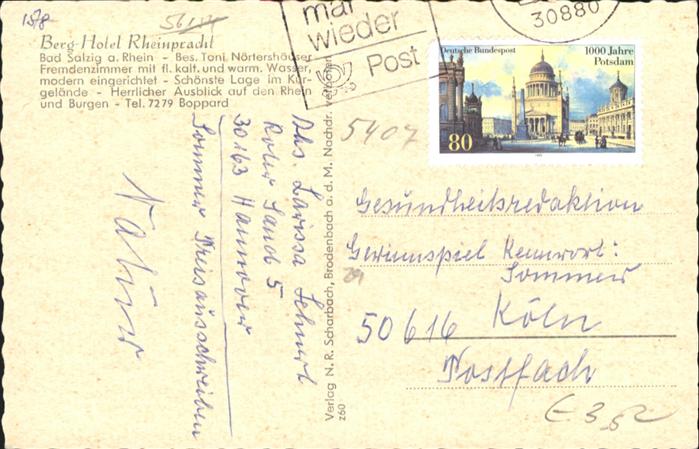 1578
5614
Berg-Hotel Rheinpracht
Bad Salzig a. Rhein - Bes. Toni Nörtershäuser
Fremdenzimmer mit fl. kalt. und warm. Wasser,
modern eingerichtet - Schönste Lage im Kur-
gelände - Herrlicher Ausblick auf den Rhein
und Burgen - Tel. 7279 Boppard
mal
wieder
Post
30880
Deutsche Bundespost
1000 Jahre
Potsdam
80
5407
Abs Larissa
Roter Sand 5
30163 Hannover
Sommer Preisausschreiben
Natur
Verlag N. R. Scharbach, Brodenbach a. d. M. Nachdr. verboten
z60
Gesundheitsredaktion
Gewinnspiel Kennwort:
Sommer
50616 Köln
Postfach
E 3,52